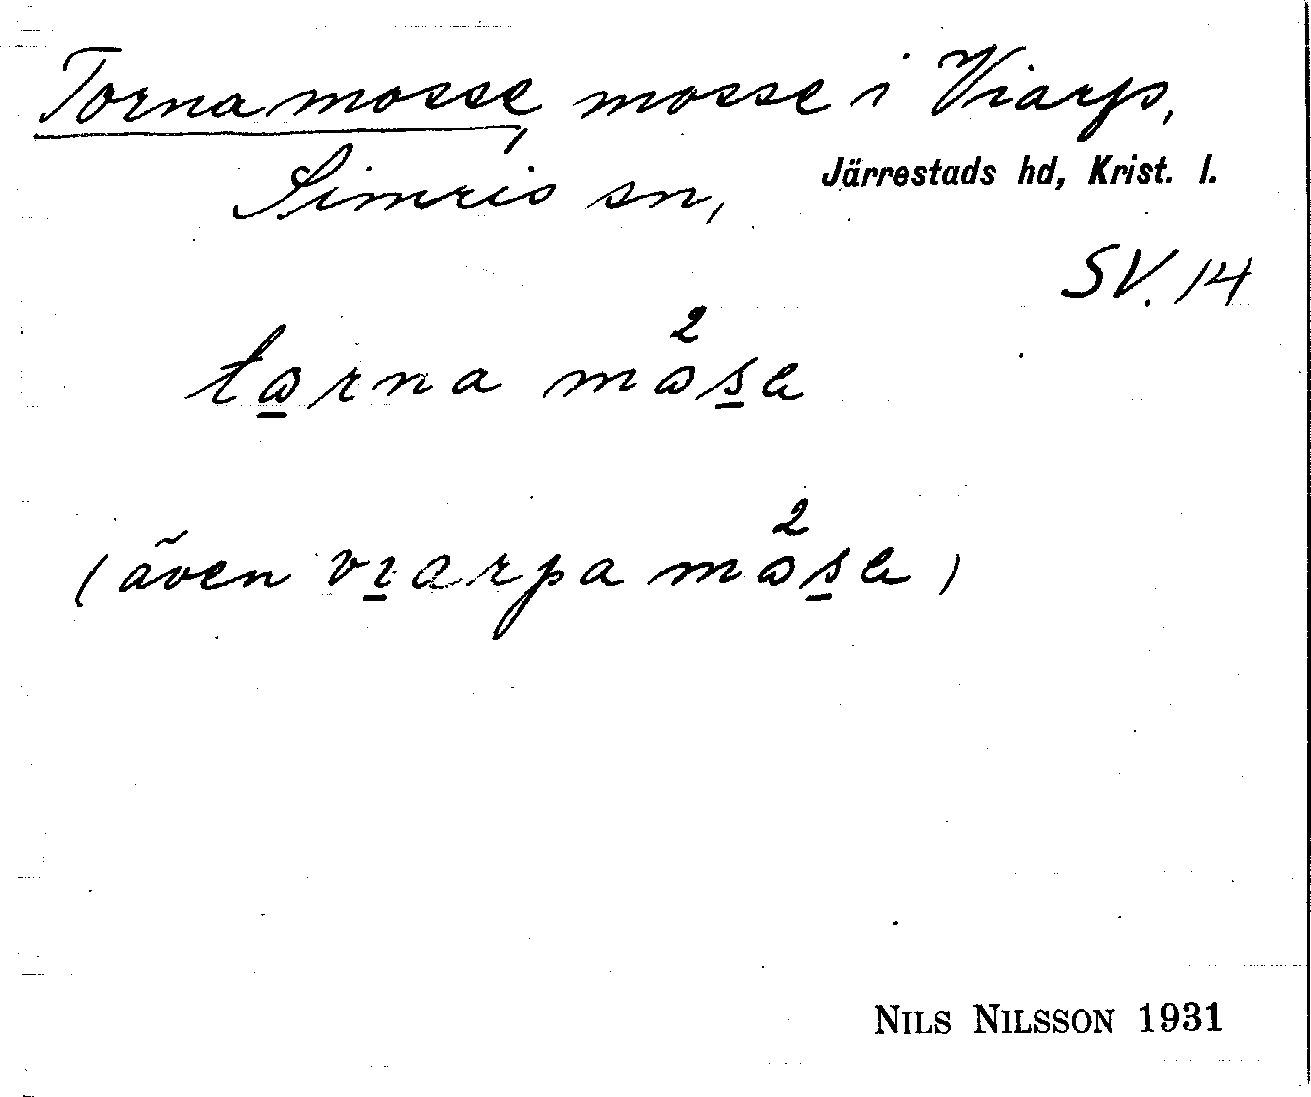 Tornamosse, mosse i Viarp,
Simris sn, Järrestads hd, Krist. l.
SV. 14
tɷ̲rna mɷ̊²s̲a
(även vı̲arpa mɷ̊²s̲a)
NILS NILSSON 1931